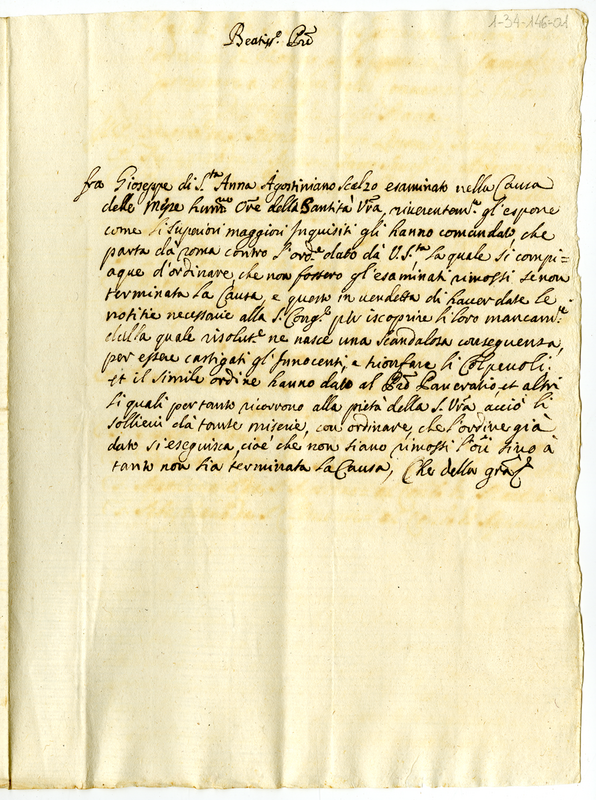 1-34-146-01
Beatiss.o Pre
fra Gioseppe di S.ta Anna Agostiniano Scalzo esaminato nella Causa
delle Messe hum.mo Ore della Santità Vra, riverentem.te gl'espone
come li Superiori maggiori Inquisiti gli hanno comandato che
parta da Roma contro l'ord.e dato dà V. S.tà la quale si compi=
aque d'ordinare che non fossero gl'esaminati rimossi se non
terminata la Causa, e questo in vendetta di haver date le
notitie necessarie alla S. Cong.e per iscoprire li loro mancam.ti
dalla quale risolut.e ne nasce una scandalosa conseguenza,
per essere castigati gl'Innocenti, e trionfare li Colpevoli.
et il simile ordine hanno dato al Pre et altri
li quali per tanto ricorrono alla pietà della S. Vra, acciò li
sollievi da tante miserie, con ordinare, che l'ordine già
dato si eseguisca, cioè che non siano rimossi l'Ori sino à
tanto non sia terminata la Causa, Che della gra